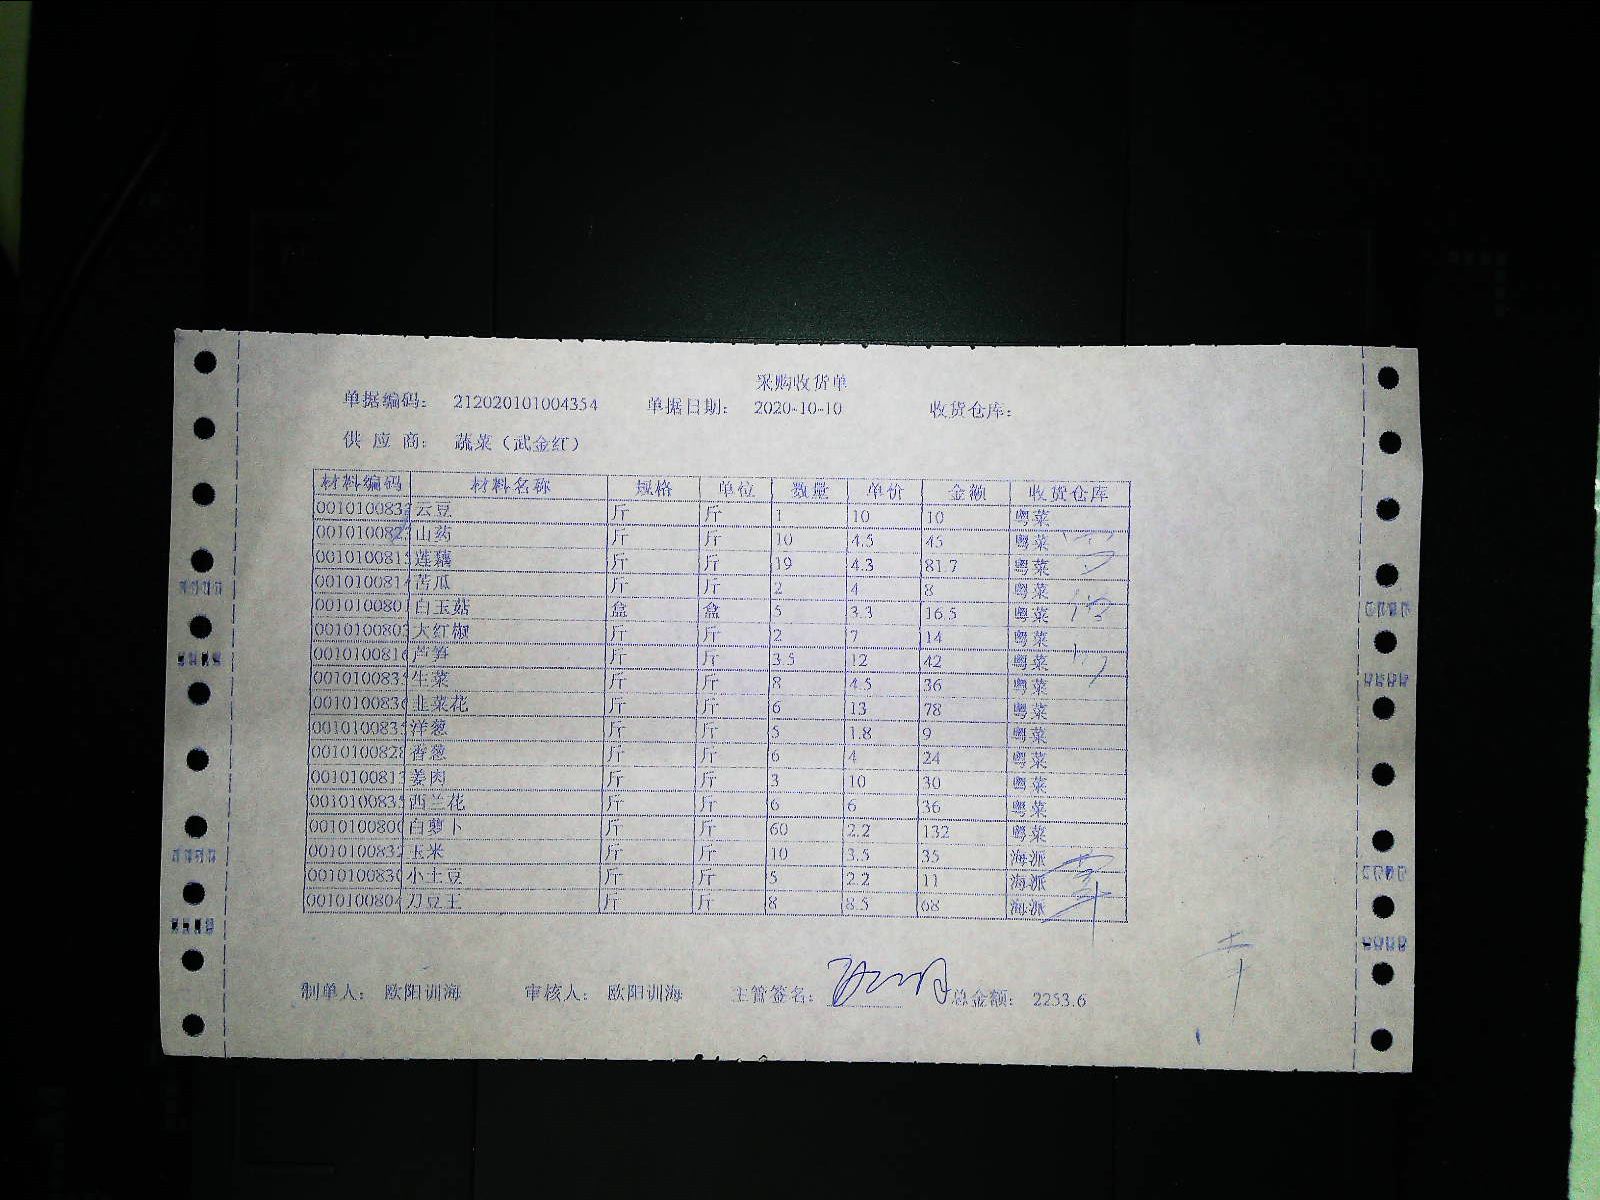 采购收货单
单据编码： 212020101004354 单据日期： 2020-10-10 收货仓库：
供 应 商： 蔬菜（武金红）
材料编码 材料名称 规格 单位 数量 单价 金额 收货仓库
001010083 云豆 斤 斤 1 10 10 粤菜
001010082 山药 斤 斤 10 4.5 45 粤菜
001010081 莲藕 斤 斤 19 4.3 81.7 粤菜
001010081 苦瓜 斤 斤 2 4 8 粤菜
001010080 白玉菇 盒 盒 5 3.3 16.5 粤菜
001010080 大红椒 斤 斤 2 7 14 粤菜
001010081 芦笋 斤 斤 3.5 12 42 粤菜
001010083 生菜 斤 斤 8 4.5 36 粤菜
001010083 韭菜花 斤 斤 6 13 78 粤菜
001010083 洋葱 斤 斤 5 1.8 9 粤菜
001010082 香葱 斤 斤 6 4 24 粤菜
001010081 姜肉 斤 斤 3 10 30 粤菜
001010083 西兰花 斤 斤 6 6 36 粤菜
001010080 白萝卜 斤 斤 60 2.2 132 粤菜
001010083 玉米 斤 斤 10 3.5 35 海派
001010083 小土豆 斤 斤 5 2.2 11 海派
001010080 刀豆王 斤 斤 8 8.5 68 海派
制单人： 欧阳训海 审核人： 欧阳训海 主管签名： 总金额： 2253.6